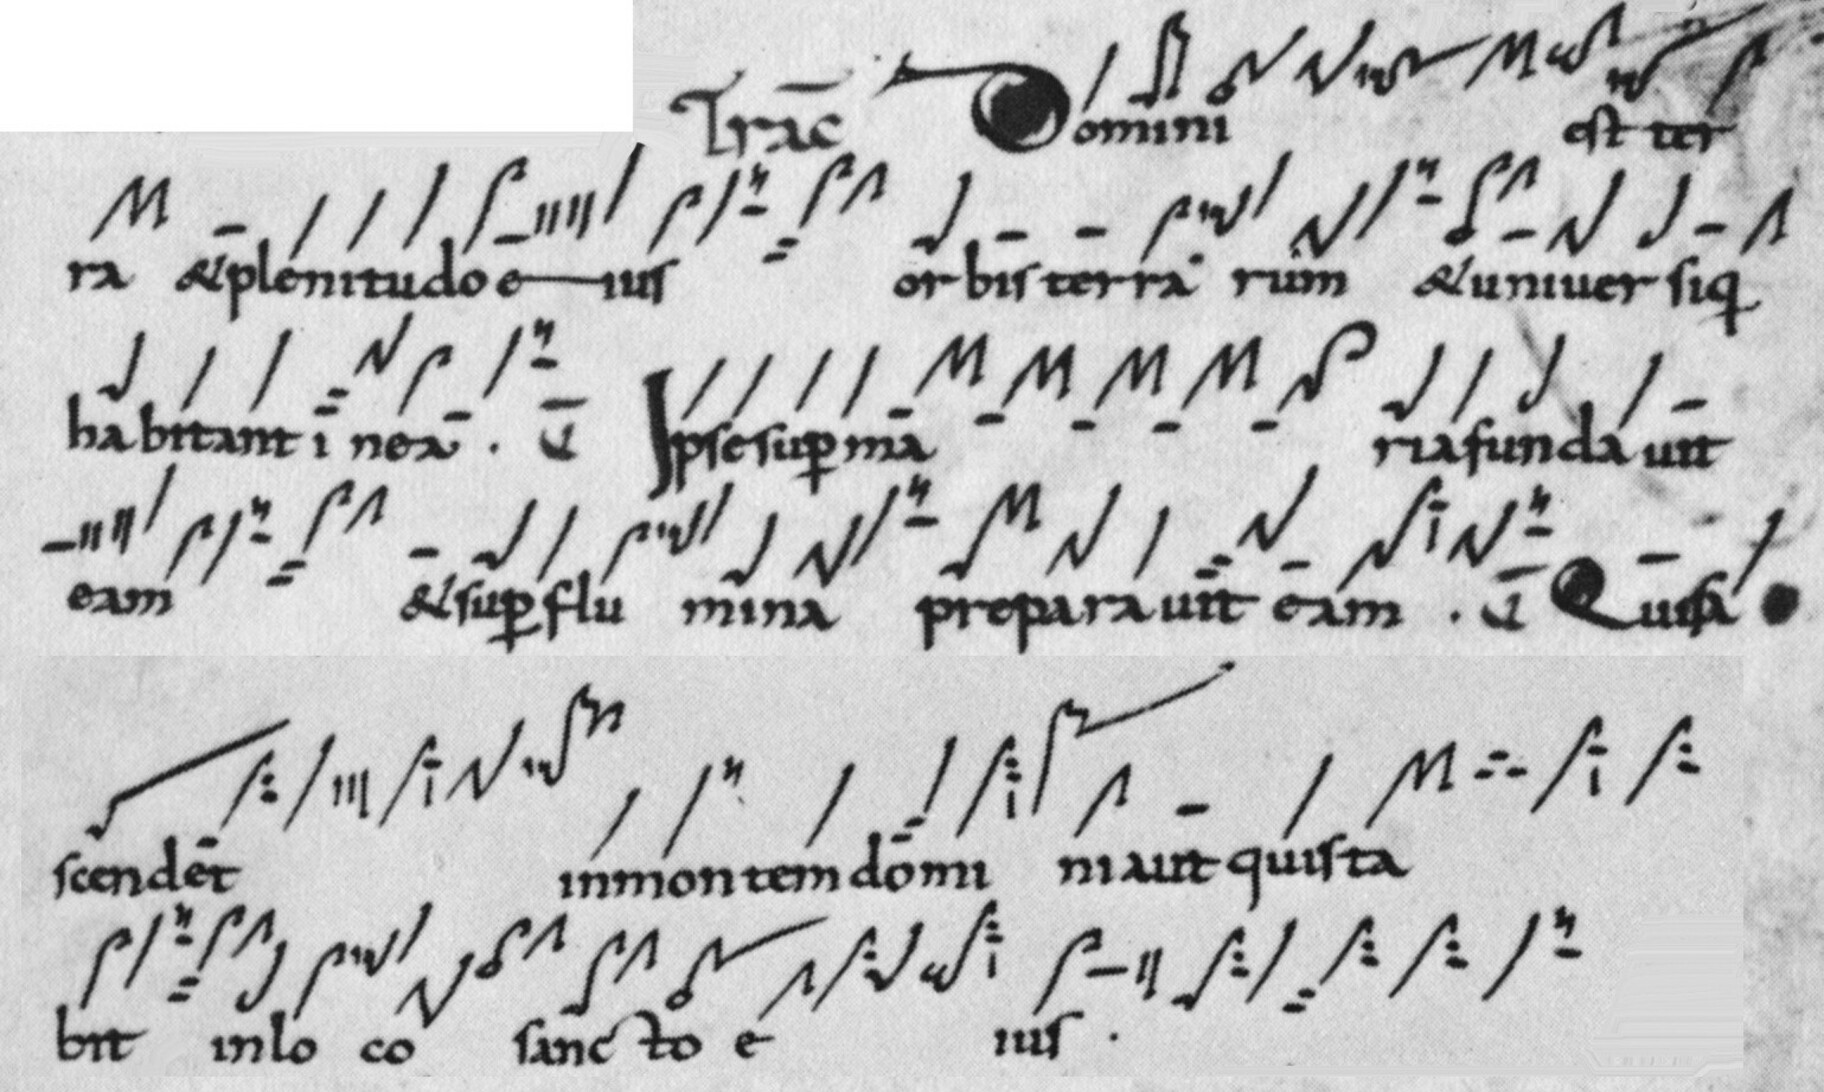 Trac̄ Domini est ter
ra &plenitudo e—iuſ orbiſ terra rum &uniuer ſiq;
habitant i nea . V̄ Ipſe ſup̱ ma riafundauit
eam &ſup̱flu mina preparauit eam . V̄ Quiſa
ſcendet inmontem domi niaut quiſta
bit inlo co ſancto e iuſ .